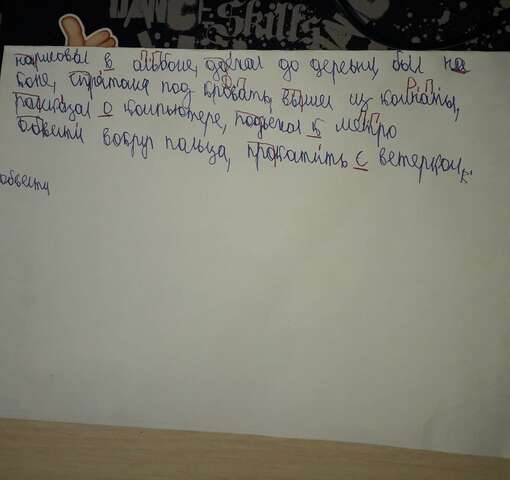 DANCE
Skills
нарисовал в альбоме, доехал до деревни, был на
коне, спрятался под кровать, вышел из комнаты,
рассказал о компьютере, подъехал к метро
обвести вокруг пальца, прокатить с ветерком
обвести